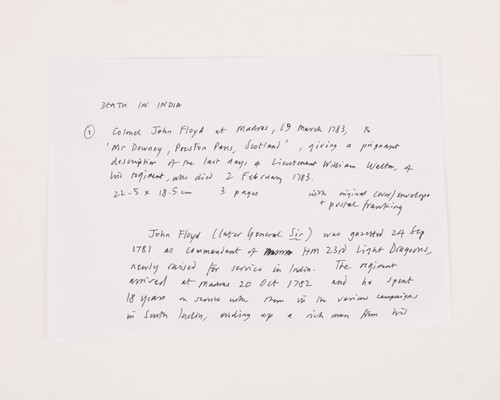 DEATH IN INDIA
① Colonel John Floyd at Madras, 19 March 1783, to
'Mr Downey, Preston Pans, Scotland', giving a poignant
description of the last days of Lieutenant William Walton, of
his regiment, who died 2 February 1783.
22.5 x 18.5 cm 3 pages with original cover/envelope
+ postal franking
John Floyd (later General Sir) was gazetted 24 Sep
1781 as commandant of HM 23rd Light Dragoons,
newly raised for service in India. The regiment
arrived at Madras 20 Oct 1782 and he spent
18 years on service with them in the various campaigns
in South India, ending up a rich man from his